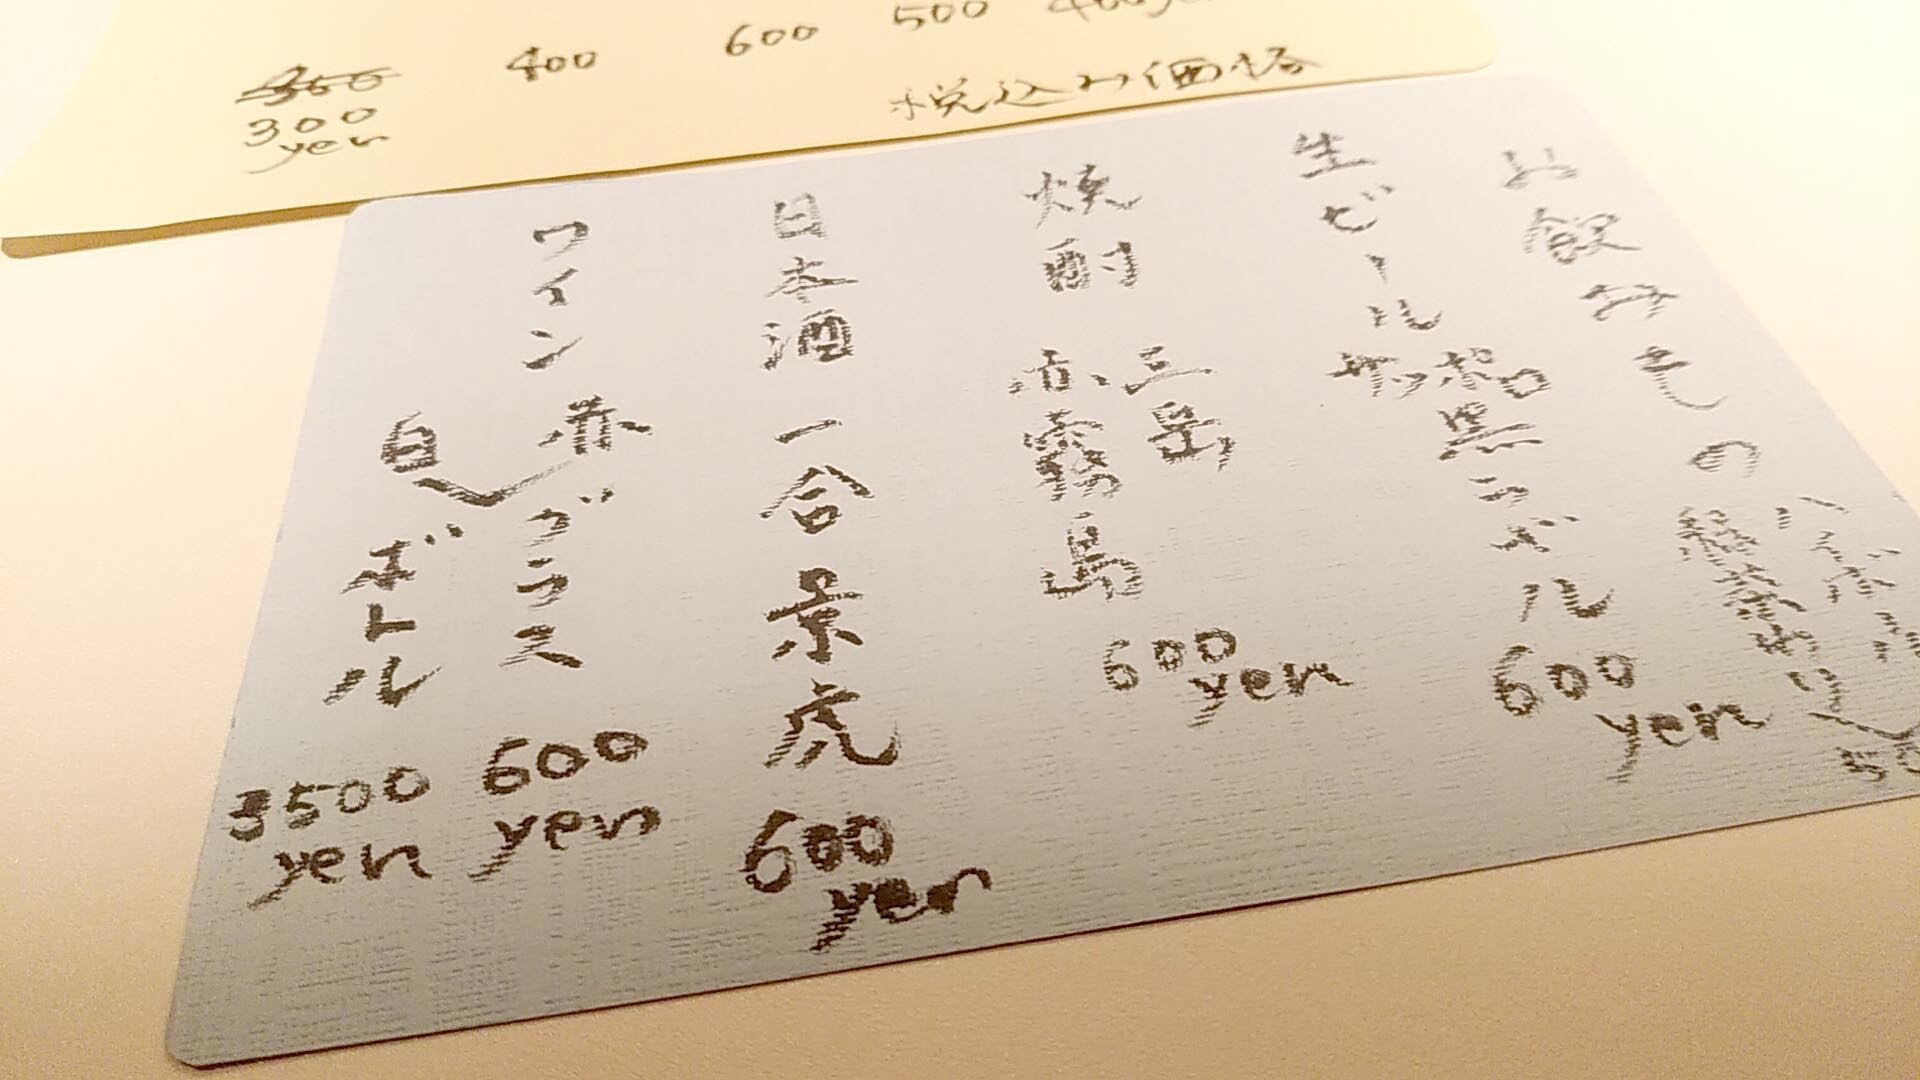 500
600
400
300
yen
税込み価格
お飲みもの
ハイボール
緑茶わり
50
生ビール サッポロ黒ラベル 600
yen
焼酎 三岳
赤霧島
600
yen
日本酒 一合 景虎 600
yen
ワイン 赤 グラス 600
yen
白 ボトル 3500
yen